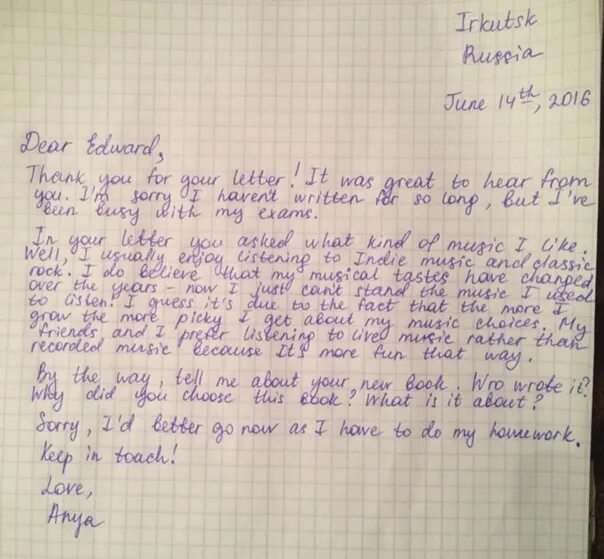 Irkutsk
Russia
June 14th, 2016
Dear Edward,
Thank you for your letter! It was great to hear from
you. I'm sorry I haven't written for so long, but I've
been busy with my exams.
In your letter you asked what kind of music I like.
Well, I usually enjoy listening to Indie music and classic
rock. I do believe that my musical tastes have changed
over the years - now I just can't stand the music I used
to listen! I guess it's due to the fact that the more I
grow the more picky I get about my music choices. My
friends and I prefer listening to live music rather than
recorded music because It's more fun that way.
By the way, tell me about your new book. Wro wrote it?
Why did you choose this book? What is it about?
Sorry, I'd better go now as I have to do my homework.
Keep in toach!
Love,
Anya